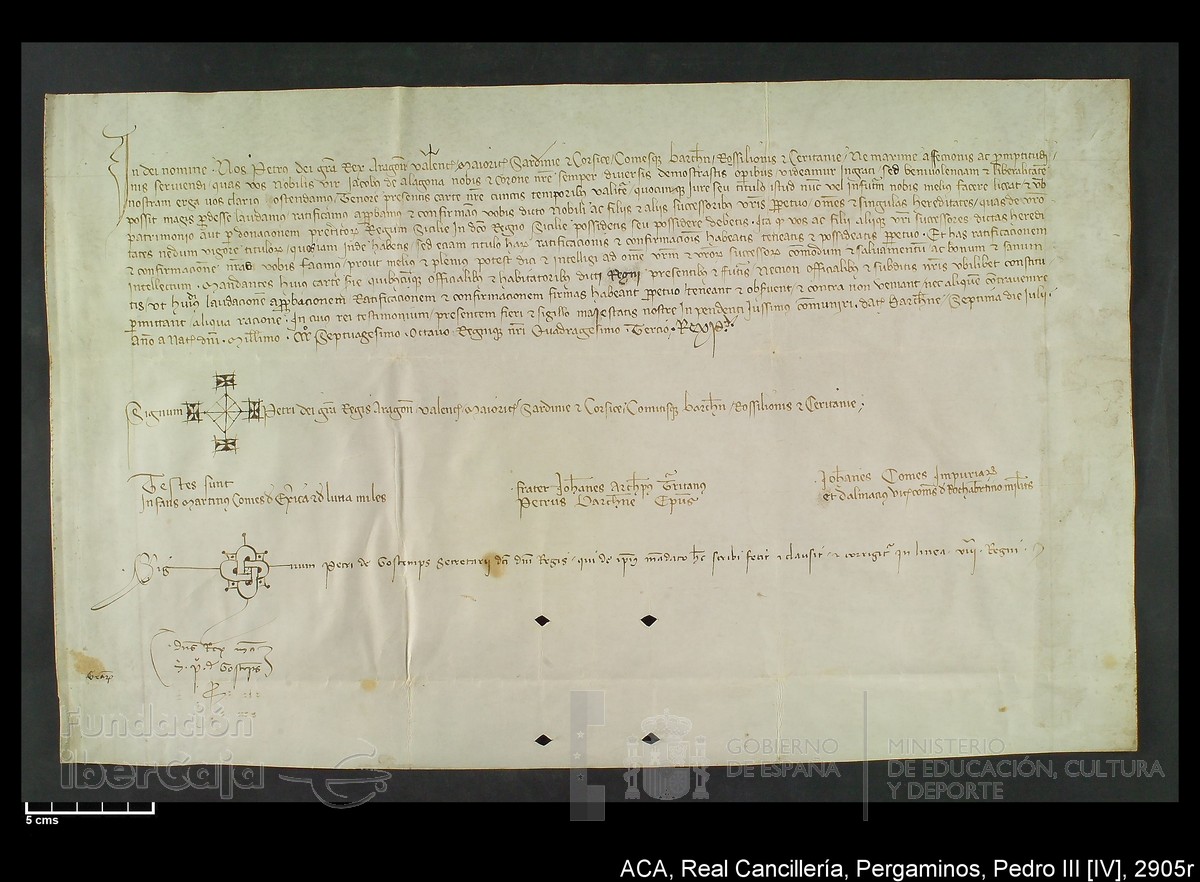 In dei nomine. Nos Petro dei gra Rex Aragon Valent Maioric Sardinie et Corsice, Comesq Barchn, Rossilionis et Ceritanie, Ne maxime affeccionis ac promptitudi
nis serviendi quas vos Nobilis vir Jacobo de Alagona nobis et Corone nre semper diversis demostrastis operibus videamur ingrati, sed benivolenciam et liberalitatem
nostram erga vos clario ostendamus, Tenore presentis carte nre cunctis temporibus valiture quocumque iure seu titulo istud nunc vel infuturum nobis melio facere liceat et vobis
possit magis prodesse laudamus ratificamus approbamus et confirmamus vobis dicto Nobili ac filiis et aliis successoribus vestris perpetuo omnes et singulas hereditates, quas de vestro
patrimonio aut per donacionem predecessorum Regum Sicilie in dco Regno Sicilie possidetis seu possidere debetis. Ita quod vos ac filii, aliique vestri successores dictas heredi
tates nedum vigore titulorum, quos iam inde habetis, sed eciam titulo harum ratificacionis et confirmacionis habeatis teneatis et possideatis perpetuo. Et has ratificacionem
et confirmacionem nras vobis facimus prout melio et plenius potest dici et intelligi ad omnem vestrum et vestrorum successorum comodum et salvamentum ac bonum et sanum
intellectum. Mandantes huius carte serie quibuscunque officialibus et habitatoribus dicti Regni presentibus et futuris Necnon officialibus et subditis nostris ubilibet constitu
tis ut huiusmodi laudacionem approbacionem Ratificacionem et confirmacionem firmas habeant perpetuo teneant et observent, et contra non veniant nec aliquem contravenire
permittant aliqua racione. In cuius rei testimonium presentem fieri et sigillo maiestatis nostre inpendenti iussimus comuniri. dat Barchne Septima die Julii
Anno a Nat dni Millimo CCC Septuagesimo Octavo Regnique nri Quadragesimo Tercio. Rex P.
Signum Petri dei gra Regis Aragon Valent Maioric Sardinie et Corsice, Comitisq Barchn, Rossilionis et Ceritanie;
Testes sunt
Infans Martino Comes d Exerica et d luna miles
frater Johanes Archps
Petrus Barchne Epus
Johanes Comes Impuriar
et Dalmatius vicecomes d Rochabertino milites
Sig num Petri de Gostemps Secretarii dci dni Regis, qui de ipius mandato hec scribi fecit et clausit, et corrigitr in linea viii Regni.
dns Rex ma
m. p. d Gostemps
Fundación
iberCaja
GOBIERNO
DE ESPAÑA
MINISTERIO
DE EDUCACIÓN, CULTURA
Y DEPORTE
5 cms
ACA, Real Cancillería, Pergaminos, Pedro III [IV], 2905r